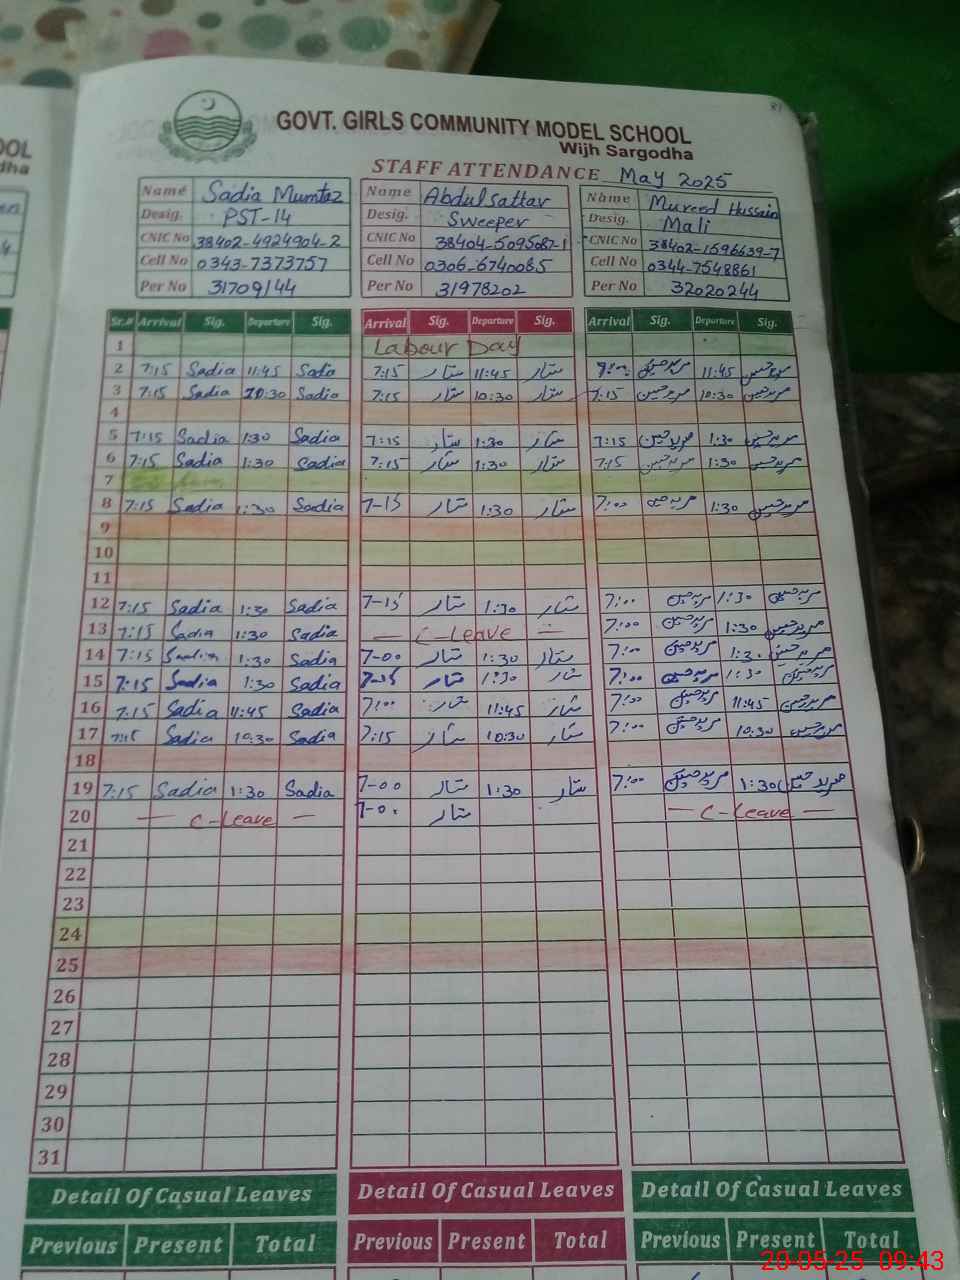 OOL
dha
GOVT. GIRLS COMMUNITY MODEL SCHOOL
Wijh Sargodha
STAFF ATTENDANCE May 2025
Name Sadia Mumtaz Name Abdulsattar Name Mureed Hussain
Desig. PST-14 Desig. Sweeper Desig. Mali
CNIC No 38402-4924904-2 CNIC No 38404-5095087-1 CNIC No 38402-1596639-7
Cell No 0343-7373757 Cell No 0306-6740085 Cell No 0344-7548861
Per No 31709144 Per No 31978202 Per No 32020244
Sr.# Arrival Sig. Departure Sig. Arrival Sig. Departure Sig. Arrival Sig. Departure Sig.
1 Labour Day
2 7:15 Sadia 11:45 Sadia 7:15 ستار 11:45 ستار مرید حسین 11:45 مرید حسین
3 7:15 Sadia 10:30 Sadia 7:15 ستار 10:30 ستار 7:15 مرید حسین 10:30 مرید حسین
4
5 7:15 Sadia 1:30 Sadia 7:15 ستار 1:30 ستار 7:15 مرید حسین 1:30 مرید حسین
6 7:15 Sadia 1:30 Sadia 7:15 ستار 1:30 ستار 7:15 مرید حسین 1:30 مرید حسین
7
8 7:15 Sadia 1:30 Sadia 7-15 ستار 1:30 ستار 7:00 مرید حسین 1:30 مرید حسین
9
10
11
12 7:15 Sadia 1:30 Sadia 7-15 ستار 1:30 ستار 7:00 مرید حسین 1:30 مرید حسین
13 7:15 Sadia 1:30 Sadia — C-Leave — 7:00 مرید حسین 1:30 مرید حسین
14 7:15 Sadia 1:30 Sadia 7-00 ستار 1:30 ستار 7:00 مرید حسین 1:30 مرید حسین
15 7:15 Sadia 1:30 Sadia 7-15 ستار 1:30 ستار 7:00 مرید حسین 1:30 مرید حسین
16 7:15 Sadia 11:45 Sadia 7:00 ستار 11:45 ستار 7:00 مرید حسین 11:45 مرید حسین
17 7:15 Sadia 10:30 Sadia 7:15 ستار 10:30 ستار 7:00 مرید حسین 10:30 مرید حسین
18
19 7:15 Sadia 1:30 Sadia 7-00 ستار 1:30 ستار 7:00 مرید حسین 1:30 مرید حسین
20 — C-Leave — 7-00 ستار — C-Leave —
21
22
23
24
25
26
27
28
29
30
31
Detail Of Casual Leaves Detail Of Casual Leaves Detail Of Casual Leaves
Previous Present Total Previous Present Total Previous Present Total
20-05-25 09:43